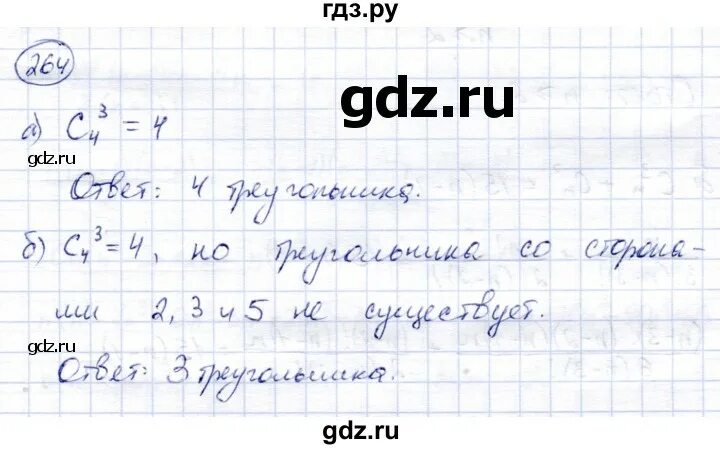 гдз.ру
264
gdz.ru
а) C₄³ = 4
gdz.ru
Ответ: 4 треугольника.
б) C₄³ = 4, но треугольника со сторона-
ми 2, 3 и 5 не существует.
gdz.ru
Ответ: 3 треугольника.
gdz.ru